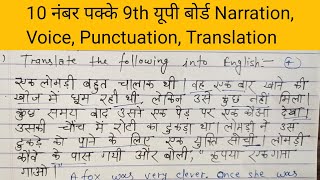 10 नंबर पक्के 9th यूपी बोर्ड Narration,
Voice, Punctuation, Translation
Translate the following into English:-
एक लोमड़ी बहुत चालाक थी। वह एक बार खाने की
खोज में घूम रही थी, लेकिन उसे कुछ नहीं मिला।
कुछ समय बाद उसने एक पेड़ पर एक कौआ देखा।
उसकी चौंच में रोटी का टुकड़ा था। लोमड़ी ने उस
टुकड़े को पाने के लिए एक युक्ति सोची। लोमड़ी
कौवे के पास गयी और बोली, "कृपया एक गाना
गाओ।"
A fox was very clever. Once she was